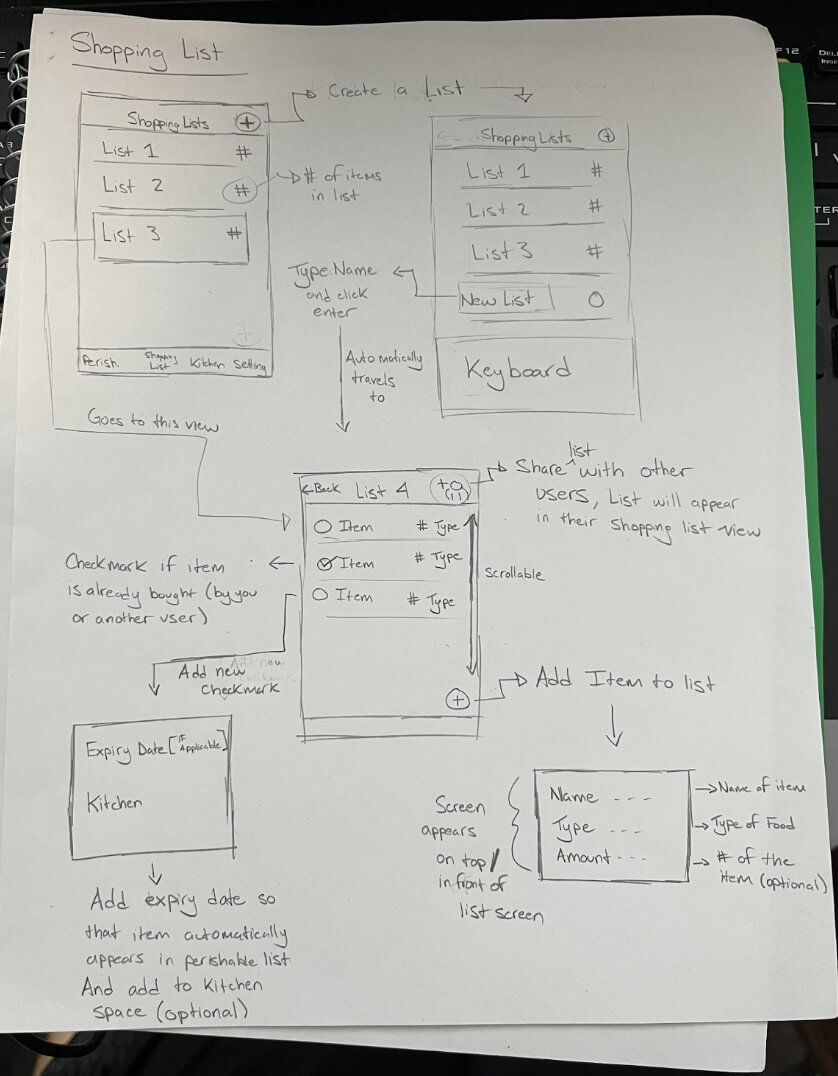 Shopping List
Create a List
Shopping Lists +
List 1 #
List 2 #
List 3 #
# of items
in list
Perish. Shopping List Kitchen Setting
Shopping Lists +
List 1 #
List 2 #
List 3 #
New List
Keyboard
Type Name
and click
enter
Automatically
travels
to
Goes to this view
←Back List 4 +
Item # Type
Item # Type
Item # Type
Scrollable
+
Share list with other
users, List will appear
in their shopping list view
Checkmark if item
is already bought (by you
or another user)
Add new
checkmark
Expiry Date [If Applicable]
Kitchen
Add expiry date so
that item automatically
appears in perishable list
And add to Kitchen
space (optional)
Add Item to list
Screen
appears
on top/
in front of
list screen
Name ---
Type ---
Amount ---
Name of item
Type of Food
# of the
item (optional)
F12